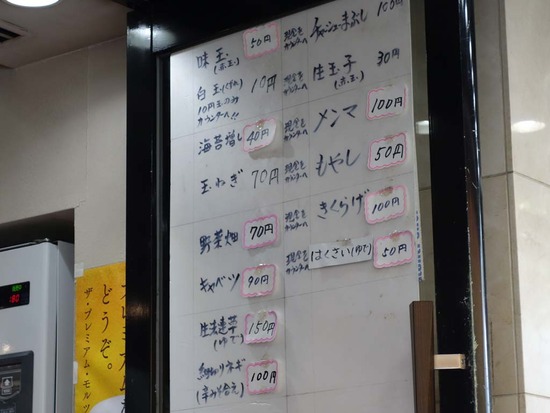 味玉 50円
(赤玉)
白玉(くずれ) 10円
10円玉のみ
カウンターへ!!
海苔増し 40円
玉ねぎ 70円
野菜畑 70円
キャベツ 90円
生法蓮草 150円
(ゆで)
細切りネギ 100円
(辛み和え)
現金を
カウンターへ
チャーシューまぶし 100円
現金を
カウンターへ
生玉子 30円
(赤玉)
現金を
カウンターへ
メンマ 100円
現金を
カウンターへ
もやし 50円
現金を
カウンターへ
きくらげ 100円
現金を
カウンターへ
はくさい(ゆで) 50円
どうぞ。
ザ・プレミアム・モルツ